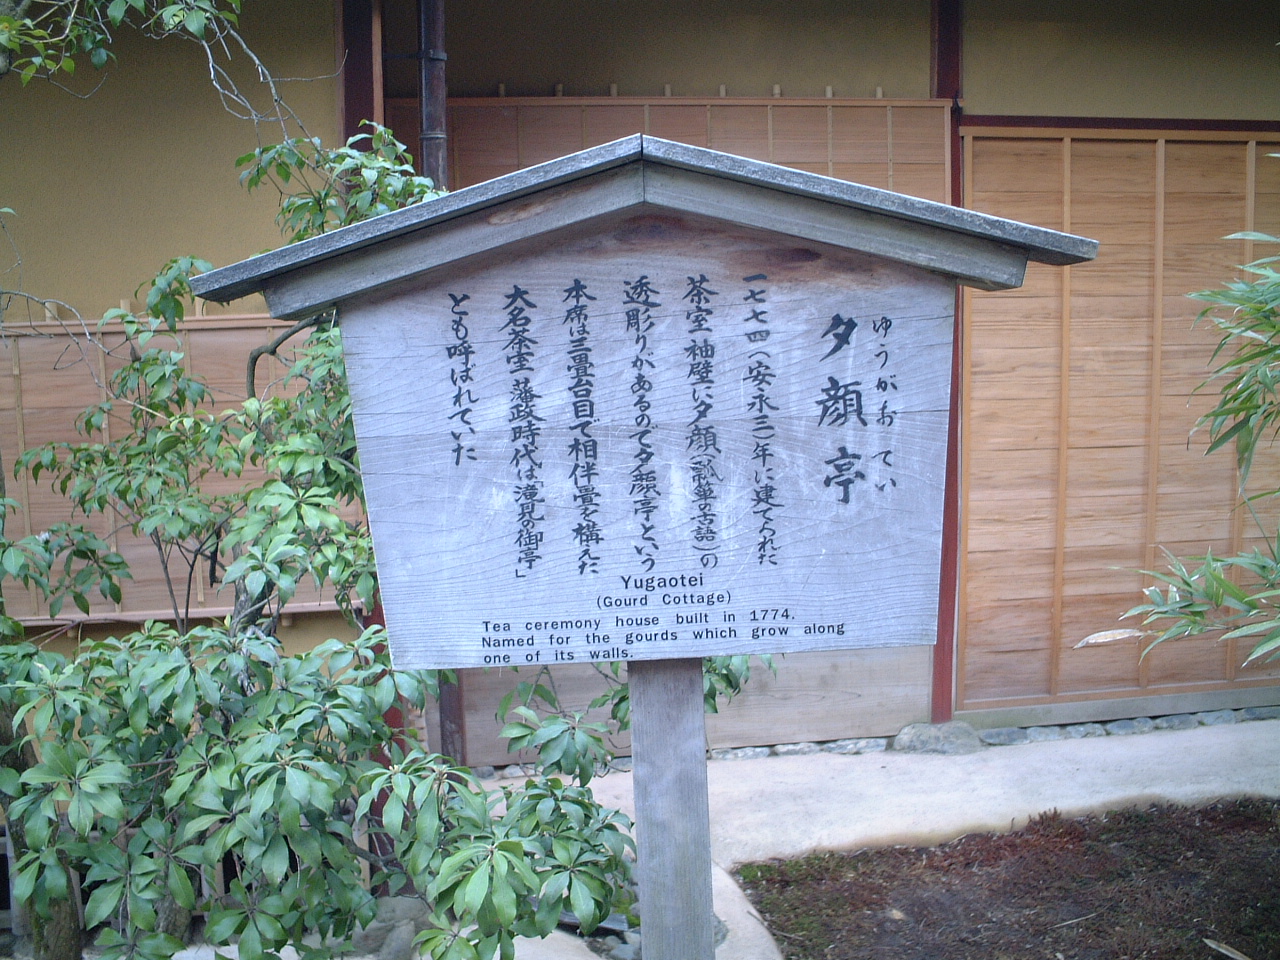 ゆうがおてい
夕顔亭
一七七四(安永三)年に建てられた
茶室 袖壁に夕顔(瓢箪の古語)の
透彫りがあるので夕顔亭という
本席は三畳台目で相伴畳を構えた
大名茶室 藩政時代は「滝見の御亭」
とも呼ばれていた
Yugaotei
(Gourd Cottage)
Tea ceremony house built in 1774.
Named for the gourds which grow along
one of its walls.